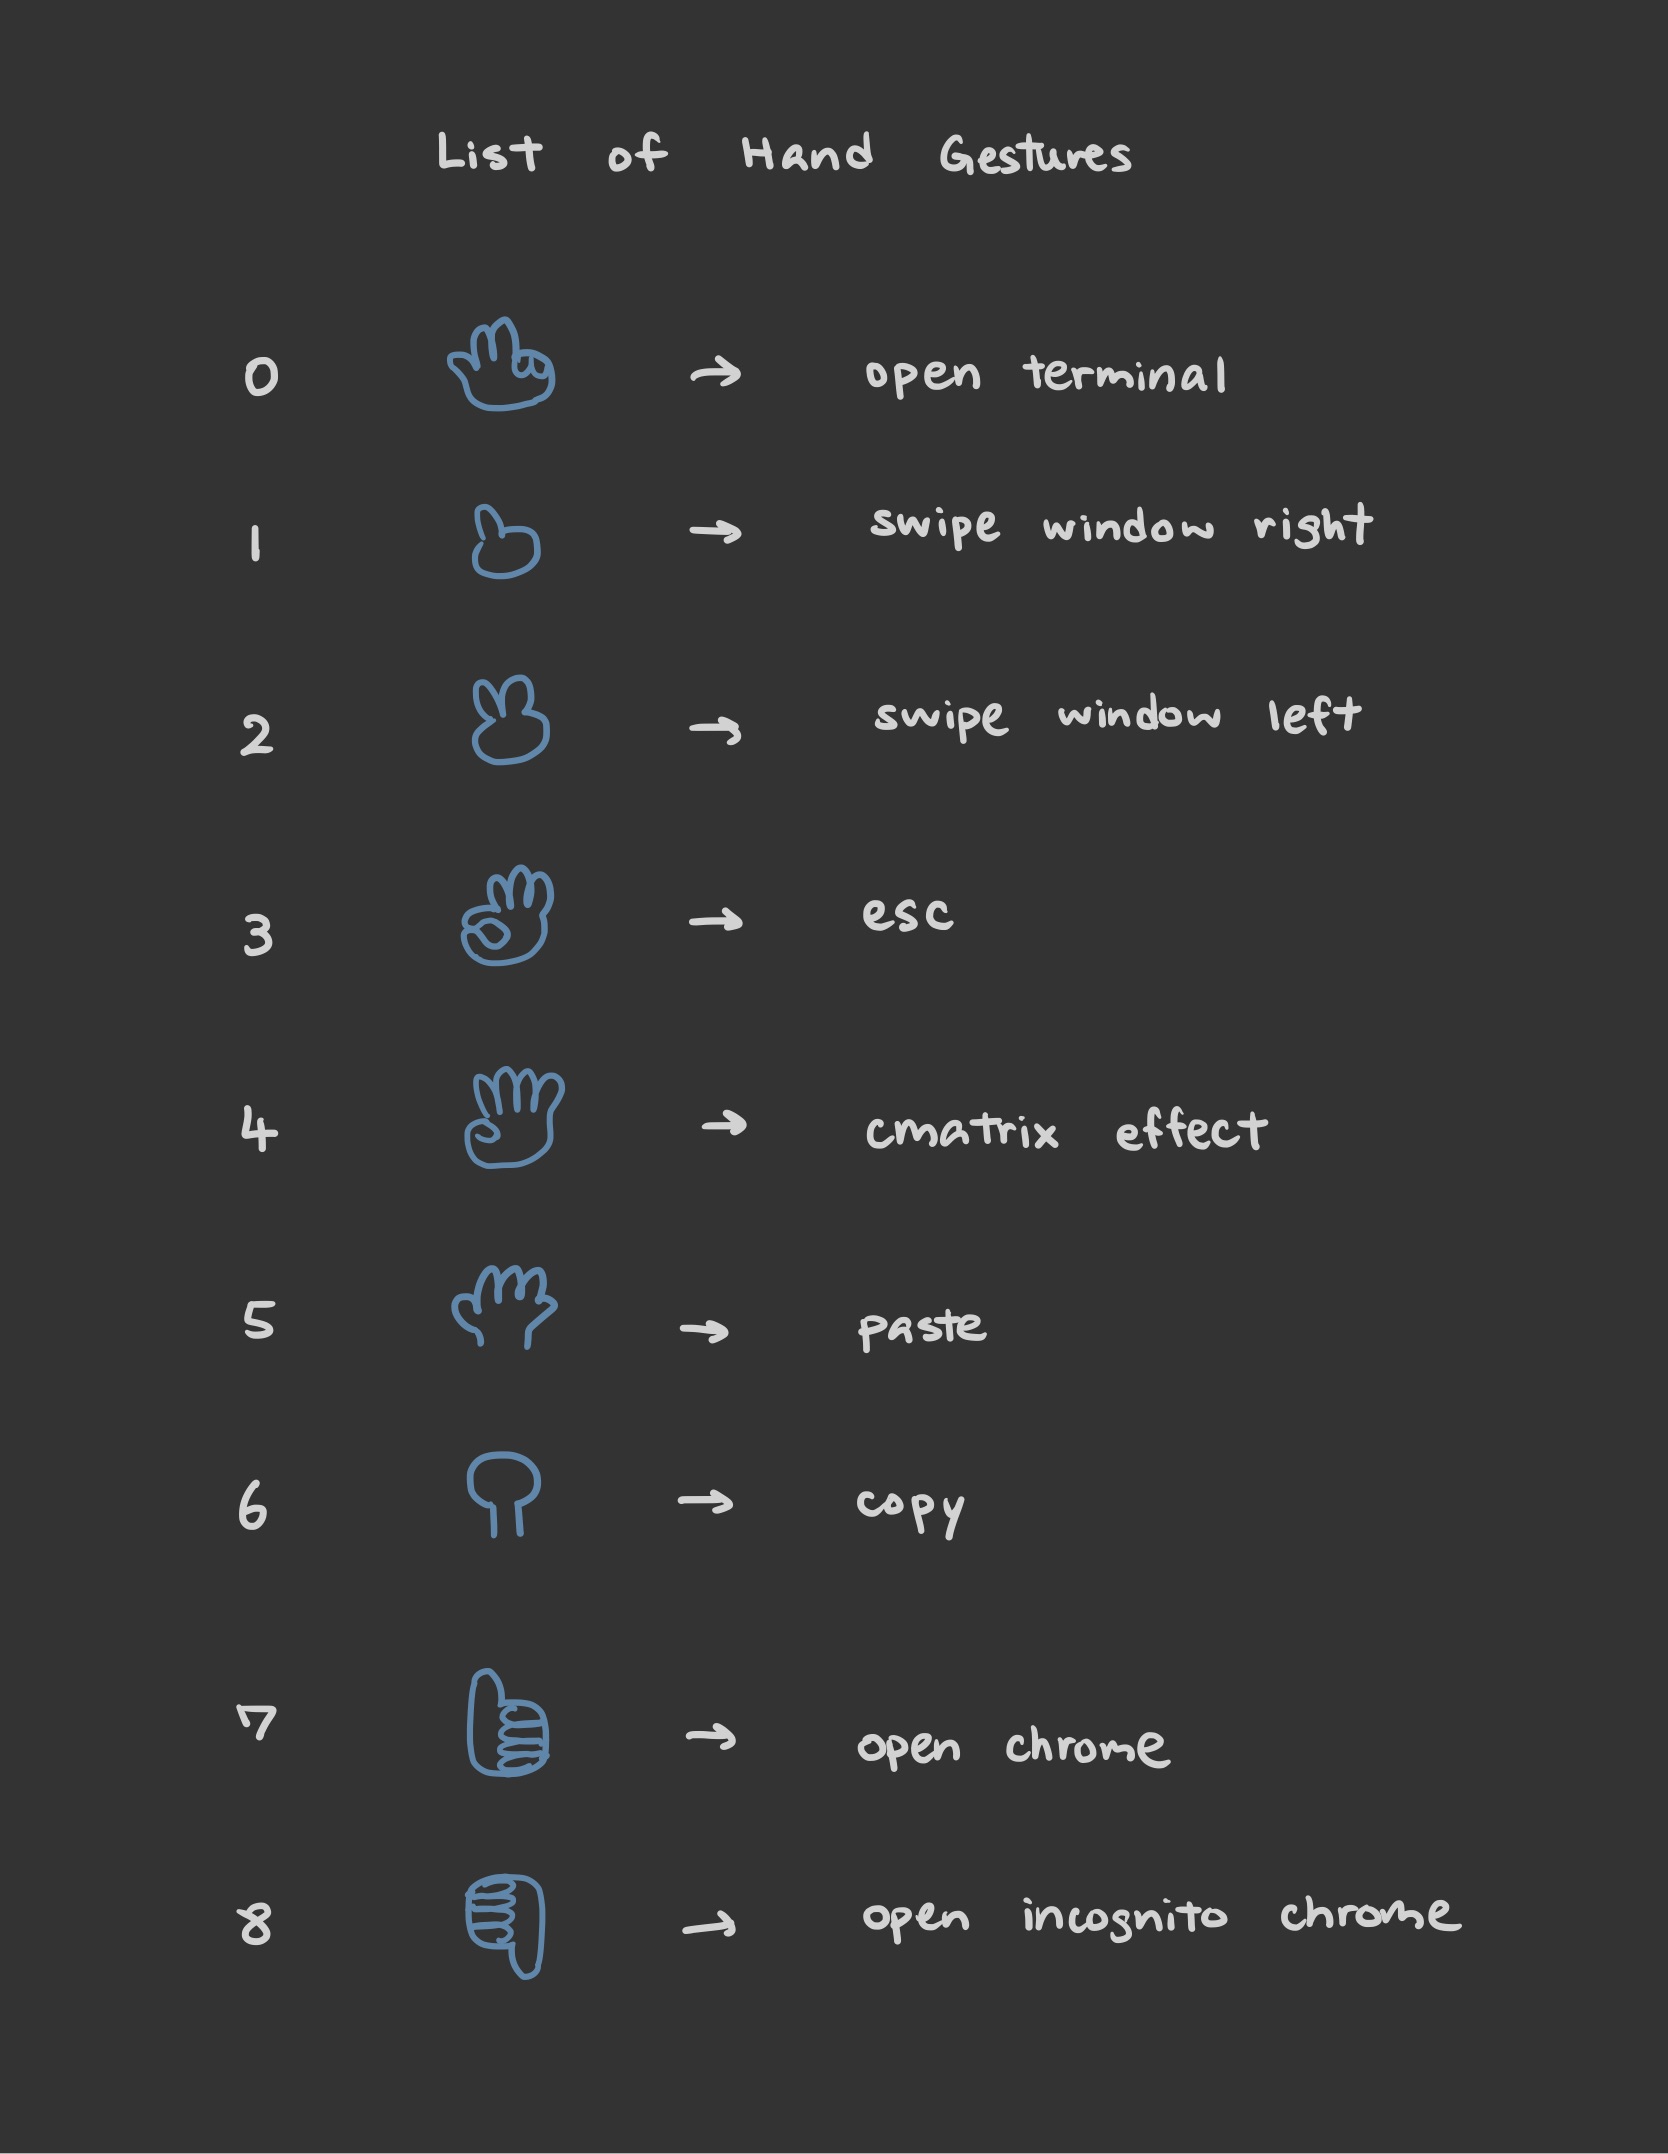 List of Hand Gestures
0 → open terminal
1 → swipe window right
2 → swipe window left
3 → esc
4 → cmatrix effect
5 → paste
6 → copy
7 → open chrome
8 → open incognito chrome